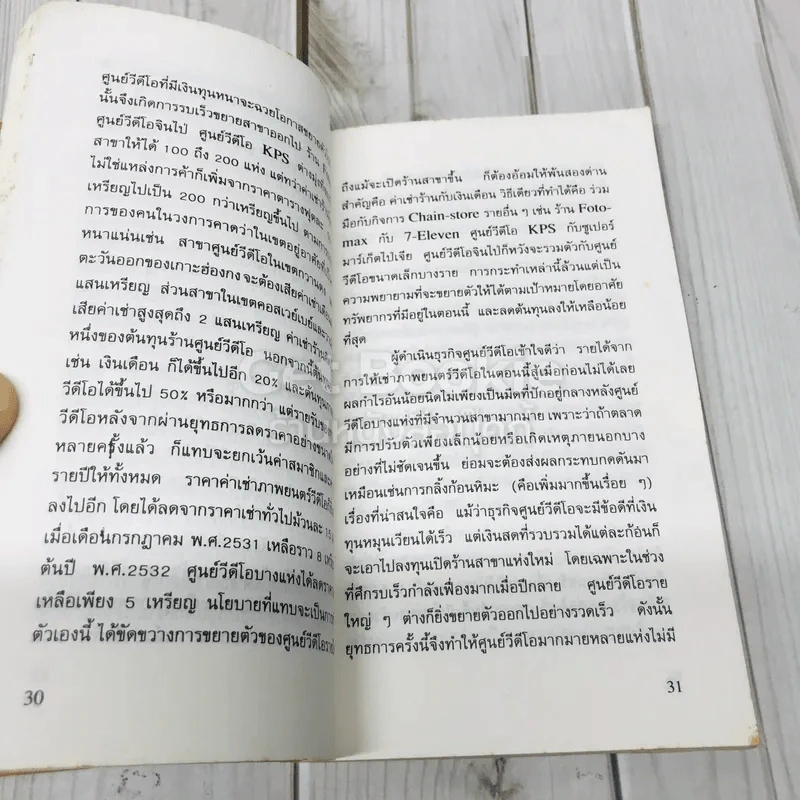 ศูนย์วีดีโอที่มีเงินทุนหนาจะฉวยโอกาสขยาย
นั้นจึงเกิดการรบเร็วขยายสาขาออกไป ร้าน
ศูนย์วีดีโอจินไป๋ ศูนย์วีดีโอ KPS ต่างมุ่ง
สาขาให้ได้ 100 ถึง 200 แห่ง แต่ทว่าค่าเช่า
ไม่ใช่แหล่งการค้าก็เพิ่มจากราคาตารางฟุตละ
เหรียญไปเป็น 200 กว่าเหรียญขึ้นไป ตาม
การของคนในวงการคาดว่าในเขตอยู่อาศัยที่
หนาแน่นเช่น สาขาศูนย์วีดีโอในเขตกวานตง
ตะวันออกของเกาะฮ่องกง จะต้องเสียค่าเช่า
แสนเหรียญ ส่วนสาขาในเขตคอสเวย์เบย์และ
เสียค่าเช่าสูงสุดถึง 2 แสนเหรียญ ค่าเช่าร้าน
หนึ่งของต้นทุนร้านศูนย์วีดีโอ นอกจากนี้ต้นทุน
เช่น เงินเดือน ก็ได้ขึ้นไปอีก 20% และต้นทุน
วีดีโอได้ขึ้นไป 50% หรือมากกว่า แต่รายรับของ
วีดีโอหลังจากผ่านยุทธการลดราคาอย่างขนาน
หลายครั้งแล้ว ก็แทบจะยกเว้นค่าสมาชิกและ
รายปีให้ทั้งหมด ราคาค่าเช่าภาพยนตร์วีดีโอก็
ลงไปอีก โดยได้ลดจากราคาเช่าทั่วไปม้วนละ 15
เมื่อเดือนกรกฎาคม พ.ศ.2531 เหลือราว 8
ต้นปี พ.ศ.2532 ศูนย์วีดีโอบางแห่งได้ลดราคา
เหลือเพียง 5 เหรียญ นโยบายที่แทบจะเป็นการ
ตัวเองนี้ ได้ขัดขวางการขยายตัวของศูนย์วีดีโอราย
30
ถึงแม้จะเปิดร้านสาขาขึ้น ก็ต้องอ้อมให้พ้นสองด่าน
สำคัญคือ ค่าเช่าร้านกับเงินเดือน วิธีเดียวที่ทำได้คือ ร่วม
มือกับกิจการ Chain-store รายอื่น ๆ เช่น ร้าน Foto-
max กับ 7-Eleven ศูนย์วีดีโอ KPS กับซูเปอร์
มาร์เก็ตไปเจีย ศูนย์วีดีโอจินไป๋ก็หวังจะรวมตัวกับศูนย์
วีดีโอขนาดเล็กบางราย การกระทำเหล่านี้ล้วนแต่เป็น
ความพยายามที่จะขยายตัวให้ได้ตามเป้าหมายโดยอาศัย
ทรัพยากรที่มีอยู่ในตอนนี้ และลดต้นทุนลงให้เหลือน้อย
ที่สุด
ผู้ดำเนินธุรกิจศูนย์วีดีโอเข้าใจดีว่า รายได้จาก
การให้เช่าภาพยนตร์วีดีโอในตอนนี้สู้เมื่อก่อนไม่ได้เลย
ผลกำไรอันน้อยนิดไม่เพียงเป็นมีดที่ปักอยู่กลางหลังศูนย์
วีดีโอบางแห่งที่มีจำนวนสาขามากมาย เพราะว่าถ้าตลาด
มีการปรับตัวเพียงเล็กน้อยหรือเกิดเหตุภายนอกบาง
อย่างที่ไม่ชัดเจนขึ้น ย่อมจะต้องส่งผลกระทบกดดันมา
เหมือนเช่นการกลิ้งก้อนหิมะ (คือเพิ่มมากขึ้นเรื่อย ๆ)
เรื่องที่น่าสนใจคือ แม้ว่าธุรกิจศูนย์วีดีโอจะมีข้อดีที่เงิน
ทุนหมุนเวียนได้เร็ว แต่เงินสดที่รวบรวมได้แต่ละก้อนก็
จะเอาไปลงทุนเปิดร้านสาขาแห่งใหม่ โดยเฉพาะในช่วง
ที่ศึกรบเร็วกำลังเฟื่องมากเมื่อปีกลาย ศูนย์วีดีโอราย
ใหญ่ ๆ ต่างก็ยิ่งขยายตัวออกไปอย่างรวดเร็ว ดังนั้น
ยุทธการครั้งนี้จึงทำให้ศูนย์วีดีโอมากมายหลายแห่งไม่มี
31